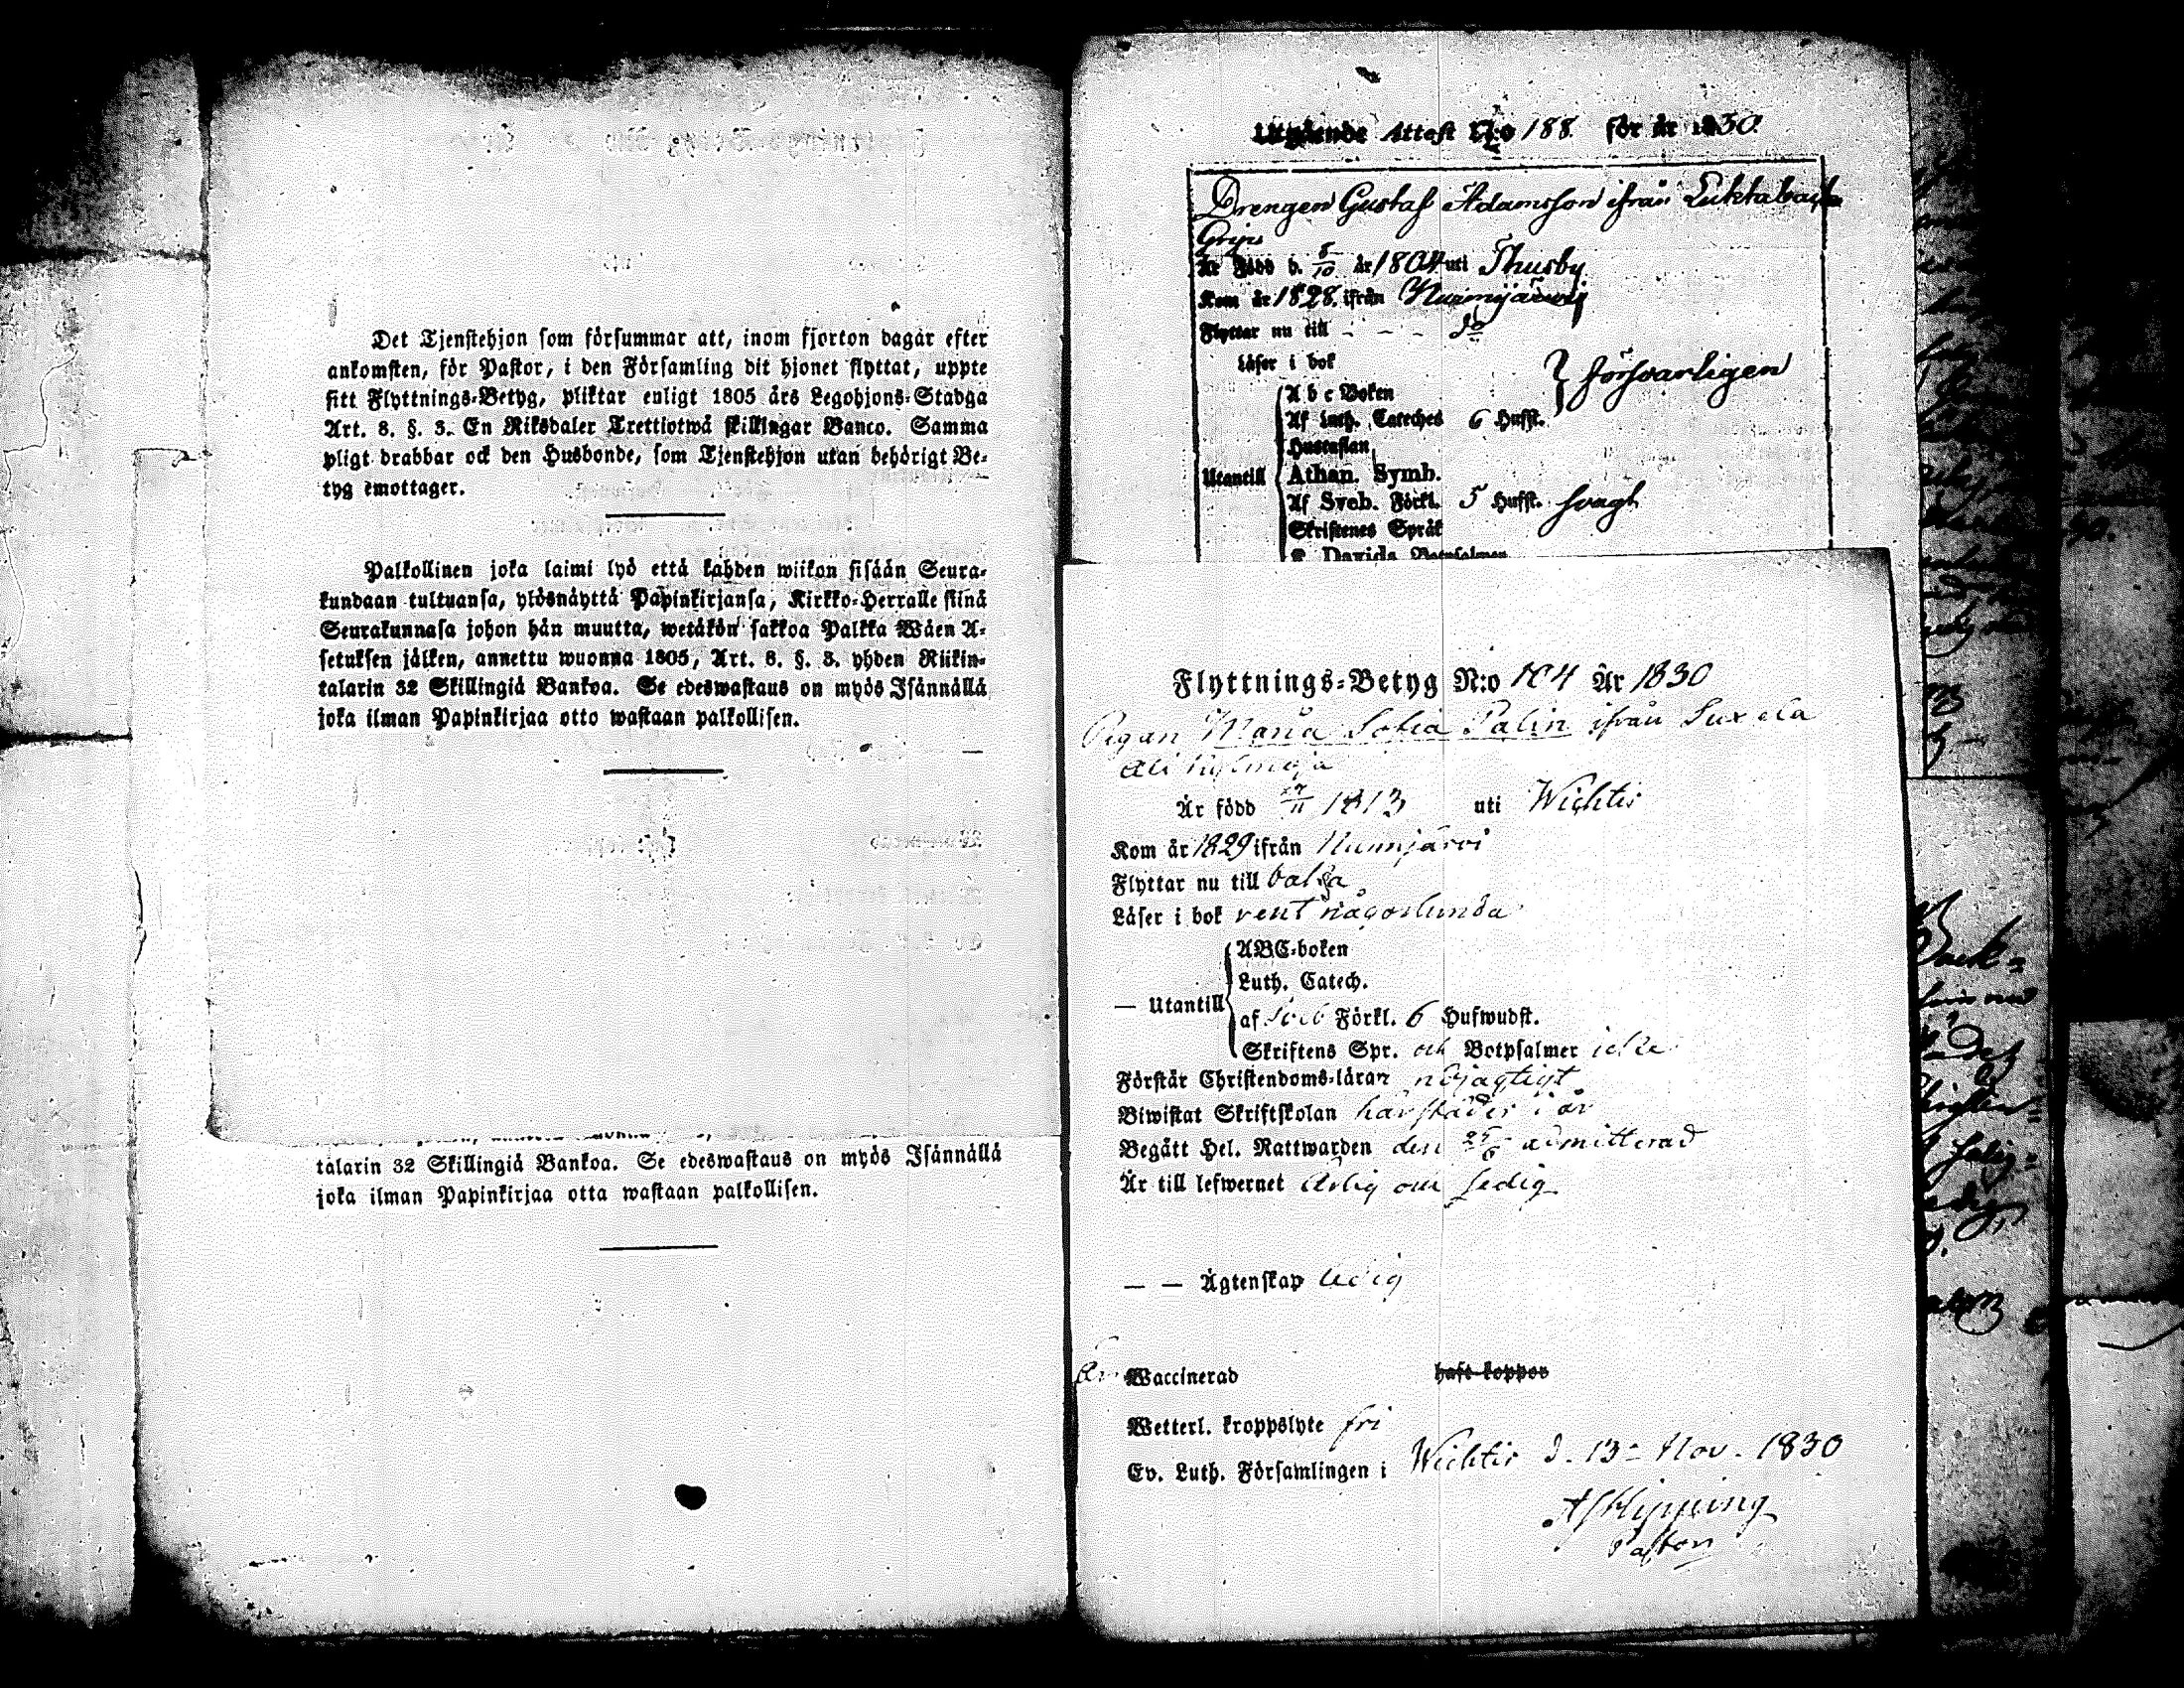 Det Tjenstehjon som försummar att, inom fjorton dagar efter
ankomsten, för Pastor, i den Församling dit hjonet flyttat, uppte
sitt Flyttnings-Betyg, pliktar enligt 1805 års Legohjons-Stadga
Art. 8. §. 3. En Riksdaler Trettiotwå skillingar Banco. Samma
pligt drabbar ock den Husbonde, som Tjenstehjon utan behörigt Be-
tyg emottager.
Palkollinen joka laimi lyö että kahden wiikon sisään Seura-
kundaan tultuansa, ylösnäyttä Papinkirjansa, Kirkko-Herralle siinä
Seurakunnasa johon hän muutta, wetäkön sakkoa Palkka Wäen A-
setuksen jälken, annettu wuonna 1805, Art. 8. §. 3. yhden Riikin-
talarin 32 Skillingiä Bankoa. Se edeswastaus on myös Isännällä
joka ilman Papinkirjaa otto wastaan palkollisen.
talarin 32 Skillingiä Bankoa. Se edeswastaus on myös Isännällä
joka ilman Papinkirjaa otta wastaan palkollisen.
Utgående Attest N:o 188. för år 1830.
Drengen Gustaf Adamsson ifrån
Är Född d. 8/10 år 1804 uti Thusby
Kom år 1828. ifrån Nurmijärvi
Flyttar nu till - - - do
Läser i bok
A b c Boken
Af Luth. Cateches 6 Hufst. } försvarligen
Hustaflan
Utantill Athan. Symb.
Af Sveb. Förkl. 5 Hufst. svagt
Skriftenes Språk
Davids Botpsalmer
Flyttnings-Betyg N:o 104 År 1830
Pigan Maria Sofia Palin ifrån
Är född 1813 uti Wichtis
Kom år 1829 ifrån Nurmijärvi
Flyttar nu till
Läser i bok rent någorlunda
ABC-boken
Luth. Catech.
— Utantill
af Sveb Förkl. 6 Hufwudst.
Skriftens Spr. och Botpsalmer icke
Förstår Christendoms-läran nöjagtigt
Biwistat Skriftskolan härstädes i år
Begått Hel. Nattwarden den admitterad
Är till lefwernet ärlig och sedig
— — Ägtenskap ledig
Är Waccinerad haft koppor
Wetterl. kroppslyte fri
Ev. Luth. Församlingen i Wichtis d. 13 Nov. 1830
Pastor